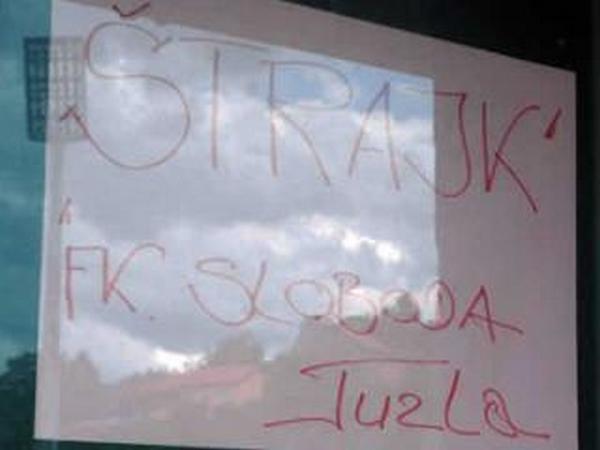 "ŠTRAJK"
"FK. SLOBODA
Tuzla